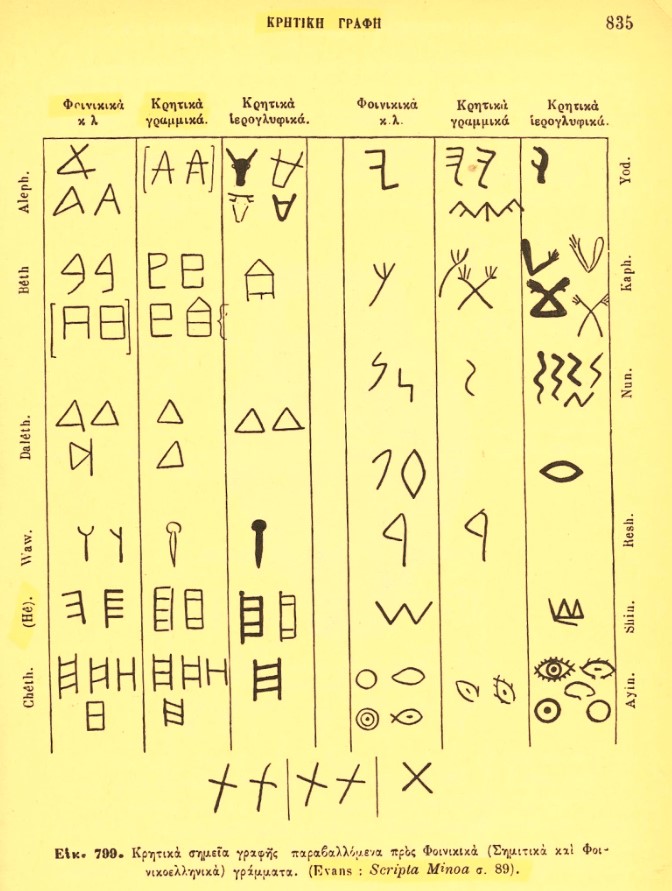 ΚΡΗΤΙΚΗ ΓΡΑΦΗ
835
Φοινικικὰ κ λ
Κρητικὰ γραμμικά.
Κρητικὰ ἱερογλυφικά.
Φοινικικὰ κ.λ.
Κρητικὰ γραμμικά
Κρητικὰ ἱερογλυφικά.
Aleph.
Béth
Daléth.
Waw.
(Hé).
Chéth.
Yod.
Kaph.
Nun.
Resh.
Shin.
Ayin.
Εἰκ. 799. Κρητικὰ σημεῖα γραφῆς παραβαλλόμενα πρὸς Φοινικικὰ (Σημιτικὰ καὶ Φοι-
νικοελληνικὰ) γράμματα. (Evans : Scripta Minoa σ. 89).